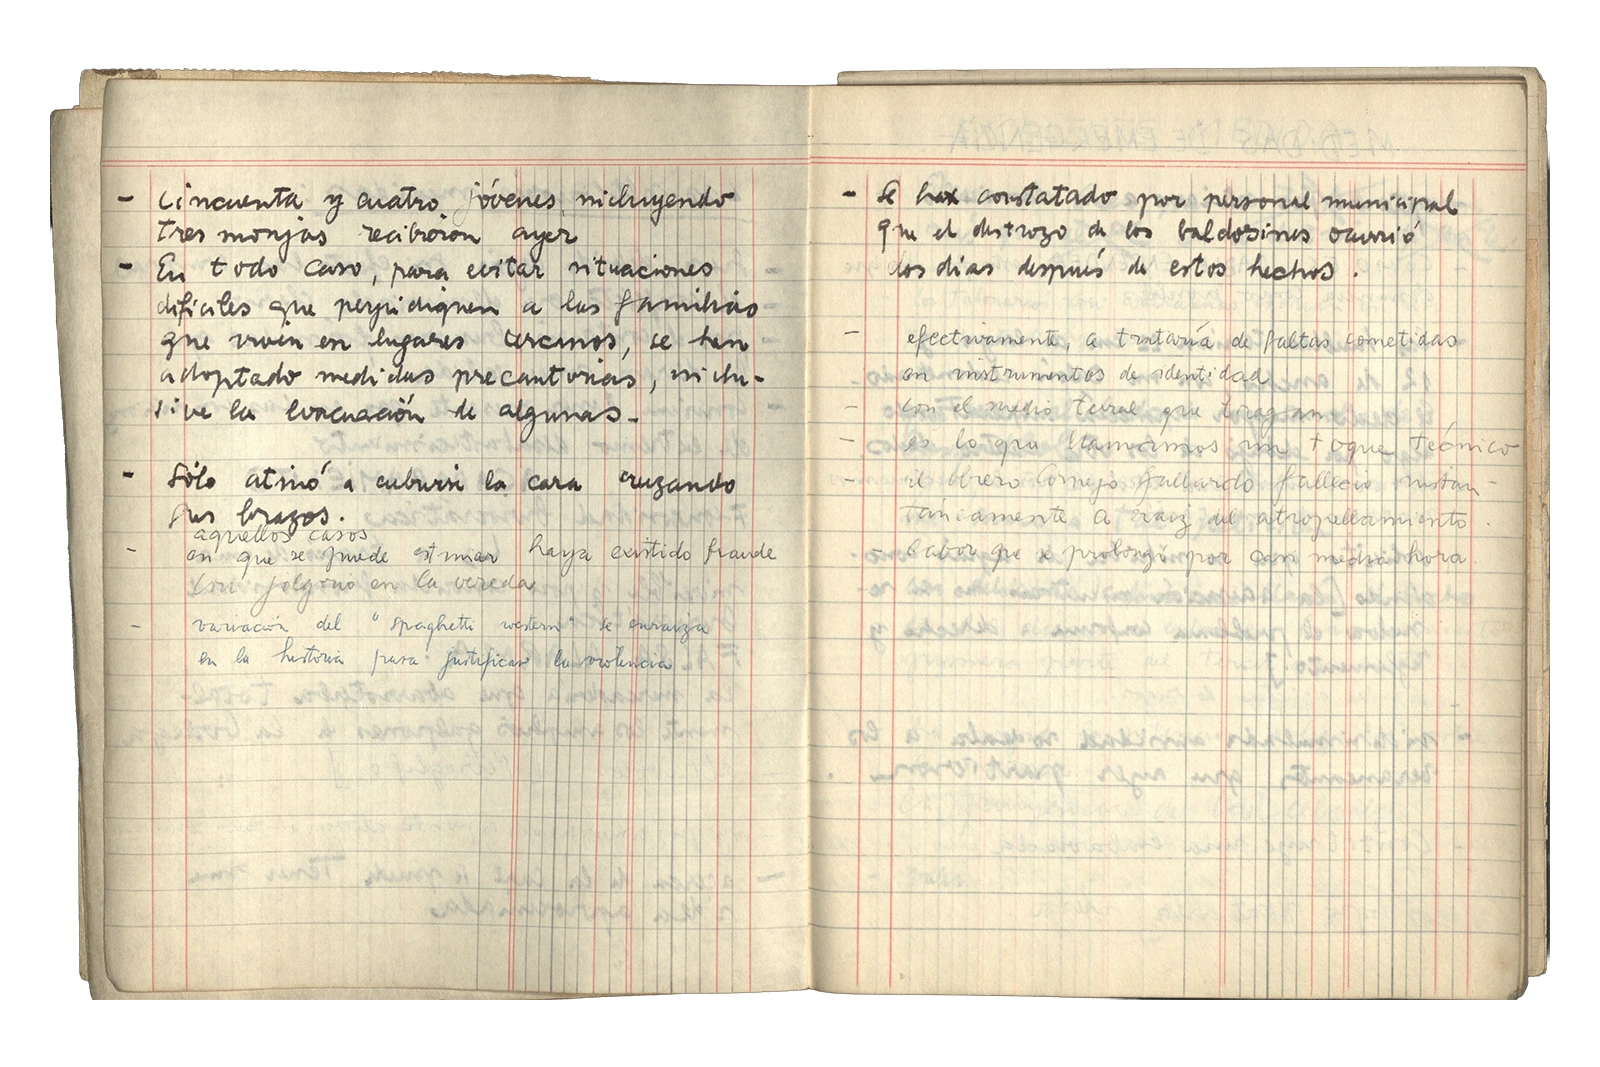 - Cincuenta y cuatro jóvenes, incluyendo
tres monjas recibieron ayer
- En todo caso, para evitar situaciones
difíciles que perjudiquen a las familias
que viven en lugares cercanos, se han
adoptado medidas precautorias, inclu-
sive la evacuación de algunas.
- Sólo atinó a cubrirse la cara cruzando
sus brazos.
aquellos casos
- en que se puede estimar haya existido fraude
en la vereda
- variación del "spaghetti western" se enraiza
en la historia para justificar la violencia
- Se ha constatado por personal municipal
que el destrozo de los baldosines ocurrió
dos días después de estos hechos.
- efectivamente, se trataría de faltas cometidas
en instrumentos de identidad
- con el medio que
- es lo que llamamos un toque técnico
- el obrero Cornejo Gallardo falleció instan-
táneamente a raiz del atropellamiento.
- labor que se prolongó por casi media hora.